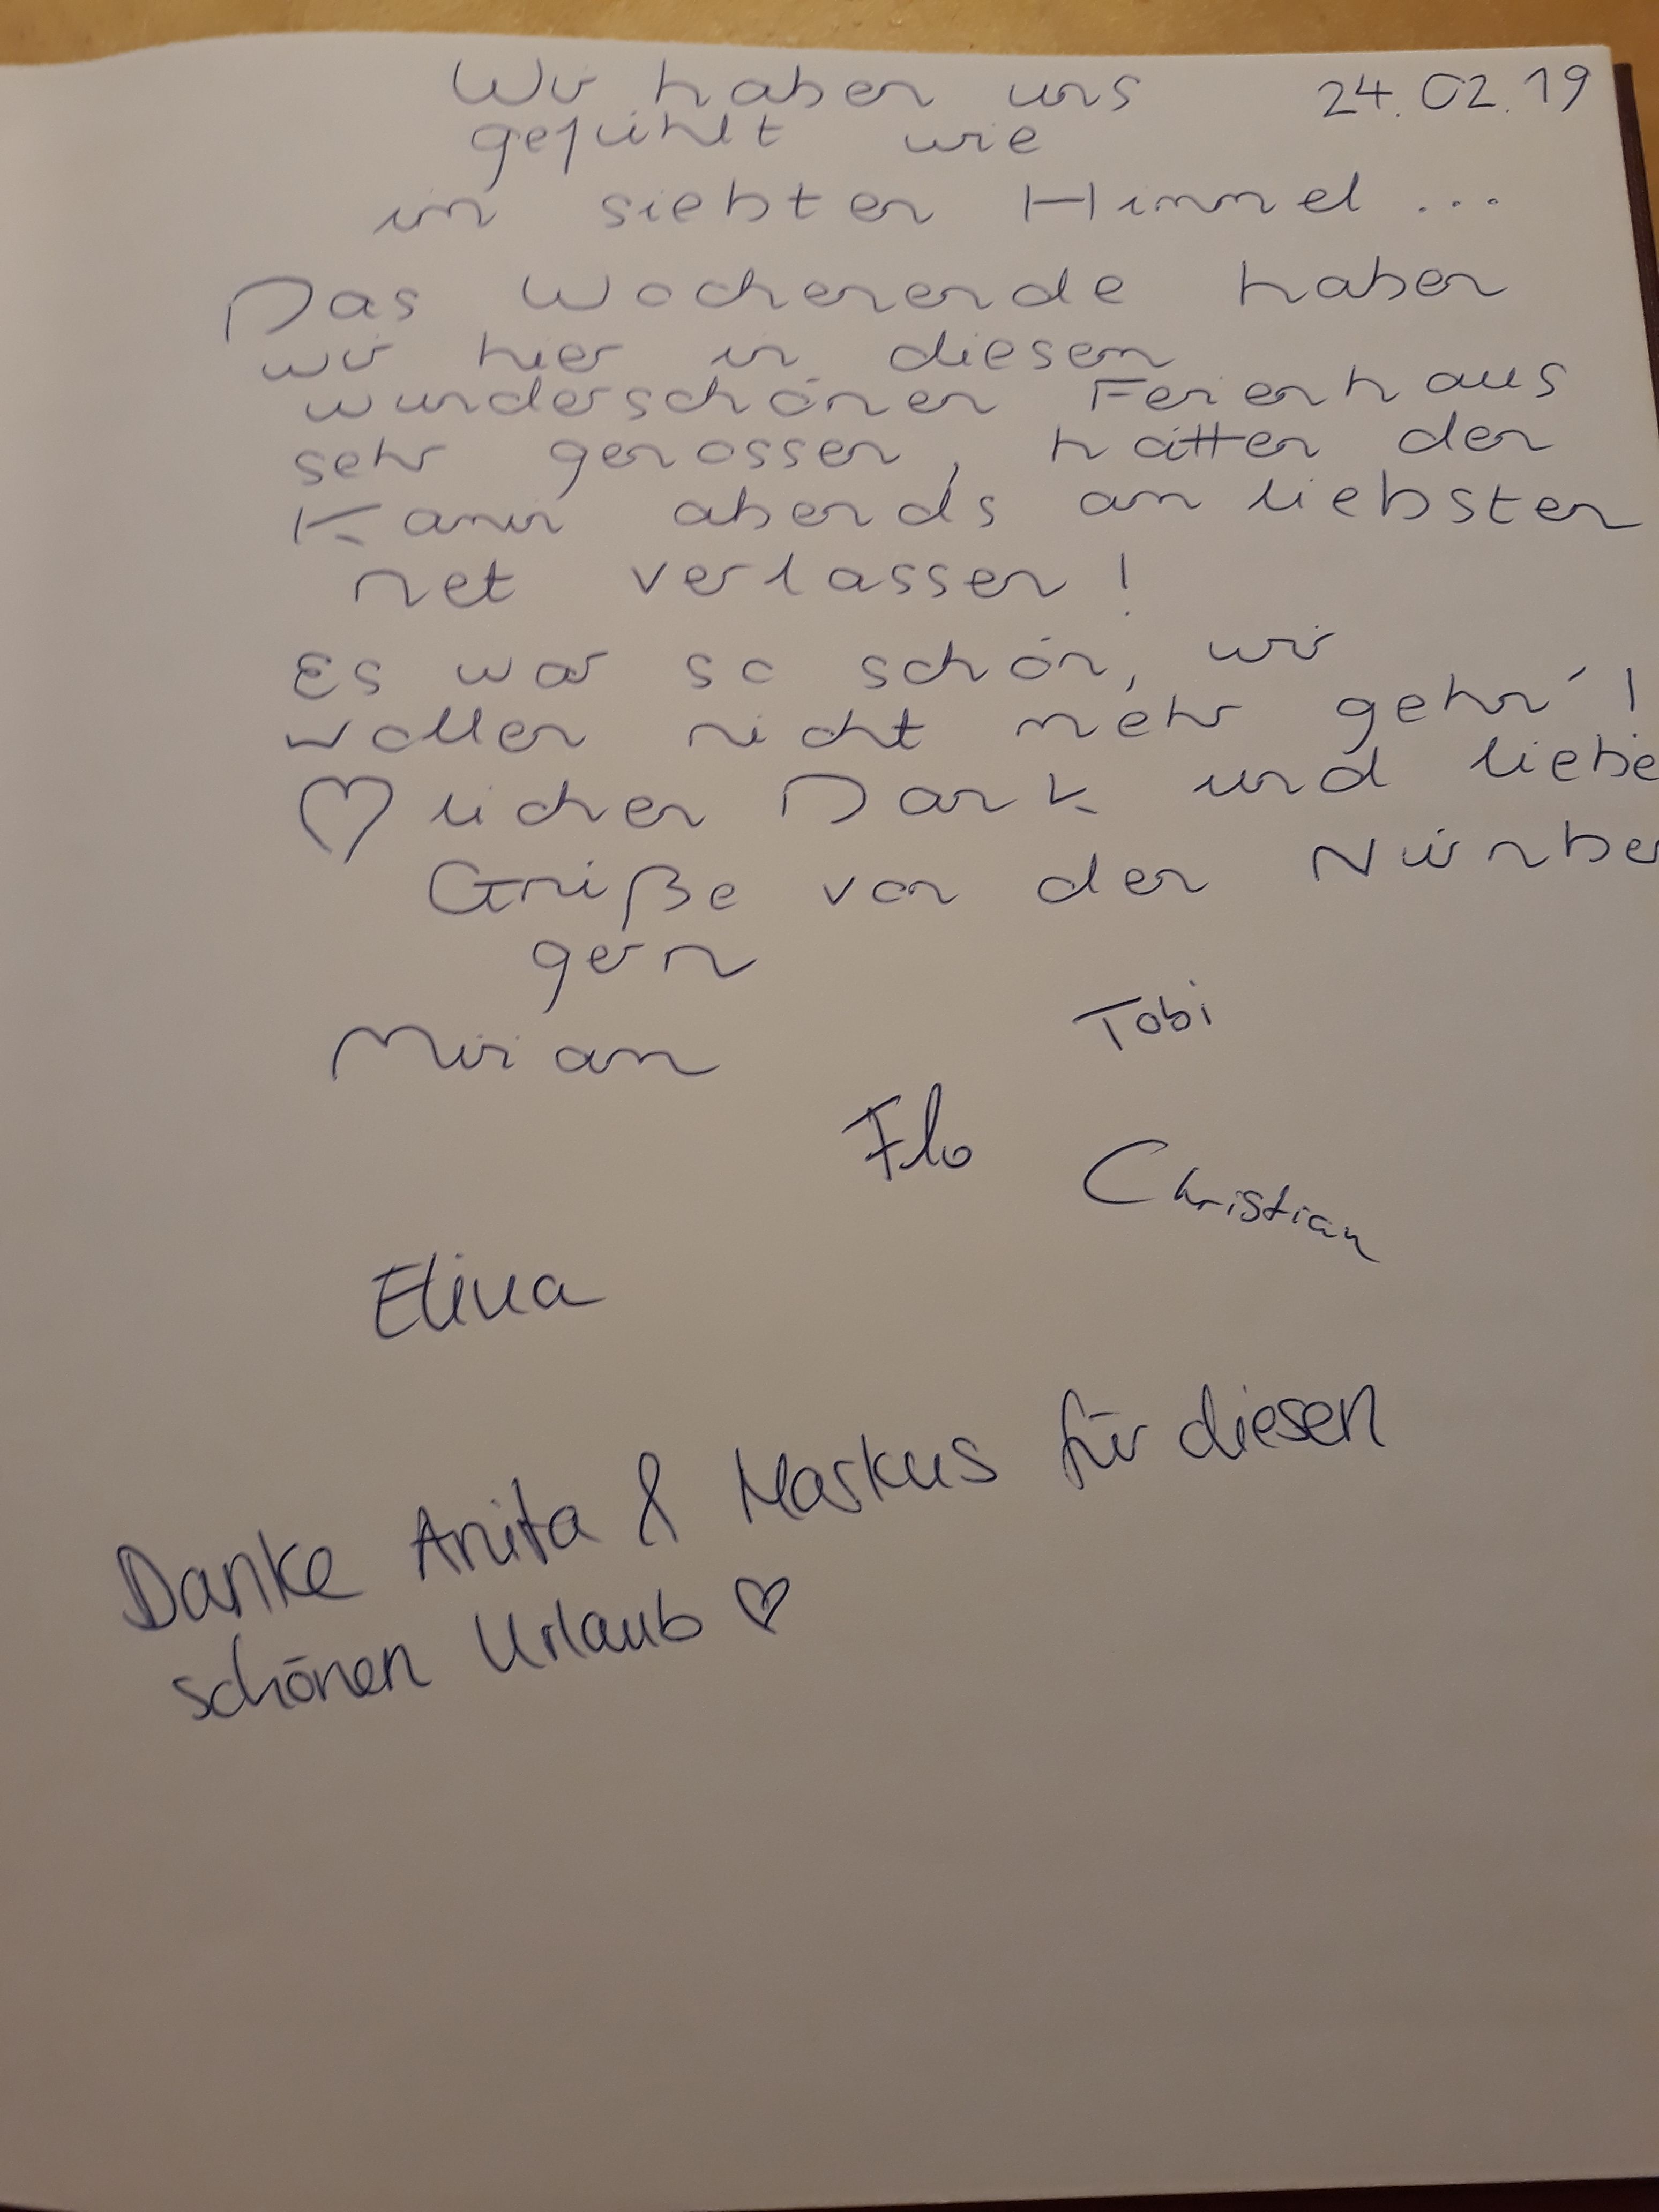 24.02.19
Wir haben uns
gefühlt wie
im siebten Himmel ...
Das Wochenende haben
wir hier in diesem
wunderschönen Ferienhaus
sehr genossen, hätten den
Kamin abends am liebsten
net verlassen!
Es war so schön, wir
wollen nicht mehr gehn'!
♡lichen Dank und liebe
Grüße von den Nürnber
gern
Miriam
Tobi
Flo
Christian
Elina
Danke Anita & Markus für diesen
schönen Urlaub ♡